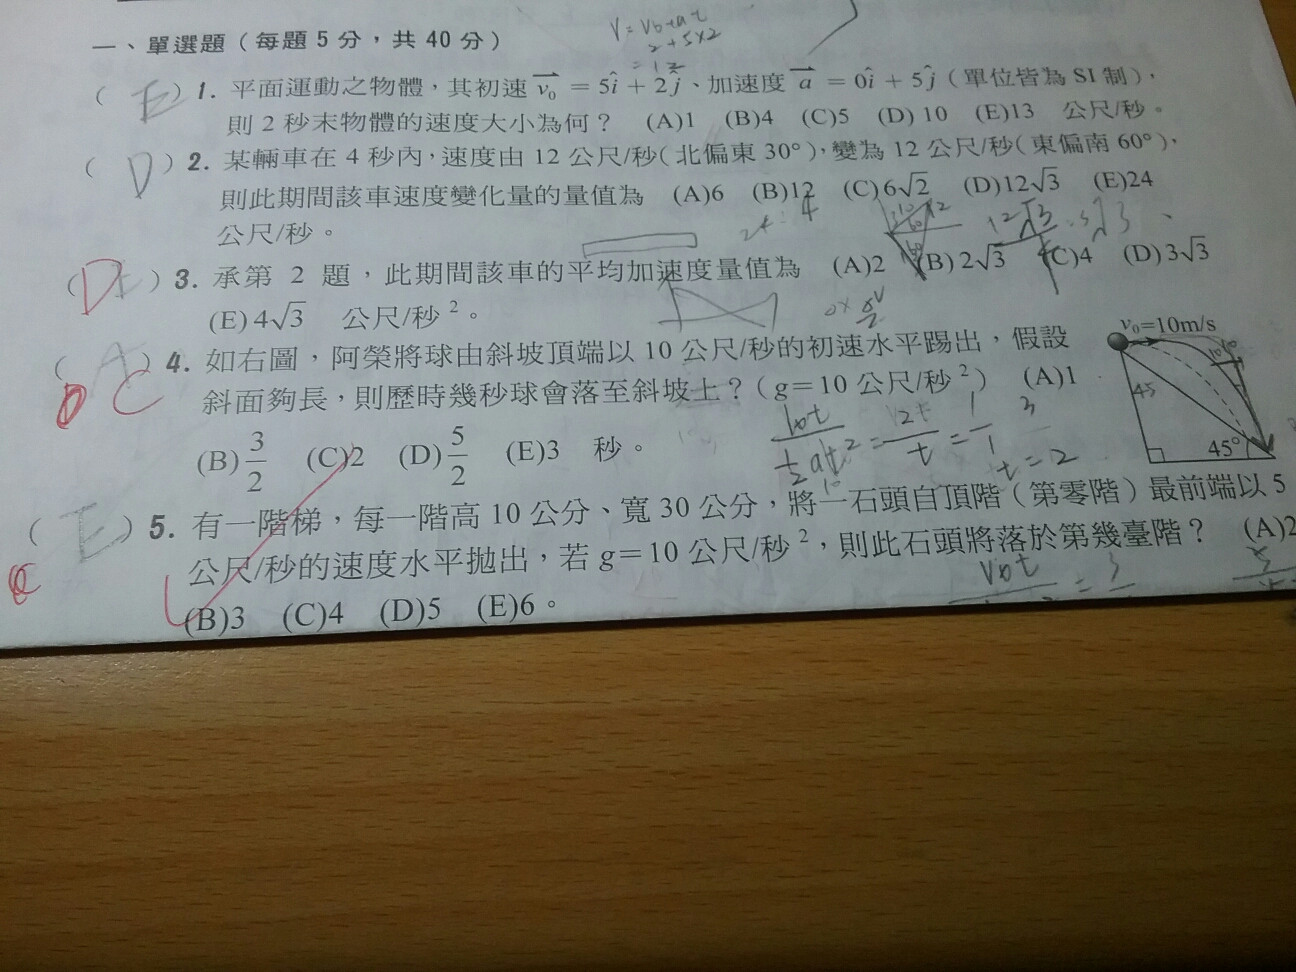 一、單選題（每題5分，共40分）
V=V0+at
2+5×2
=12
(E) 1. 平面運動之物體，其初速 v0 = 5î + 2ĵ、加速度 a = 0î + 5ĵ（單位皆為SI制），
則2秒末物體的速度大小為何？ (A)1 (B)4 (C)5 (D)10 (E)13 公尺/秒。
(D) 2. 某輛車在4秒內，速度由12公尺/秒（北偏東30°），變為12公尺/秒（東偏南60°），
則此期間該車速度變化量的量值為 (A)6 (B)12 (C)6√2 (D)12√3 (E)24
公尺/秒。
(D) 3. 承第2題，此期間該車的平均加速度量值為 (A)2 (B)2√3 (C)4 (D)3√3
(E)4√3 公尺/秒²。
v0=10m/s
45
45°
(A) 4. 如右圖，阿榮將球由斜坡頂端以10公尺/秒的初速水平踢出，假設
C
斜面夠長，則歷時幾秒球會落至斜坡上？（g=10公尺/秒²） (A)1
(B)3/2 (C)2 (D)5/2 (E)3 秒。
t=2
(E) 5. 有一階梯，每一階高10公分、寬30公分，將一石頭自頂階（第零階）最前端以5
公尺/秒的速度水平拋出，若g=10公尺/秒²，則此石頭將落於第幾臺階？ (A)2
(B)3 (C)4 (D)5 (E)6。
V0t